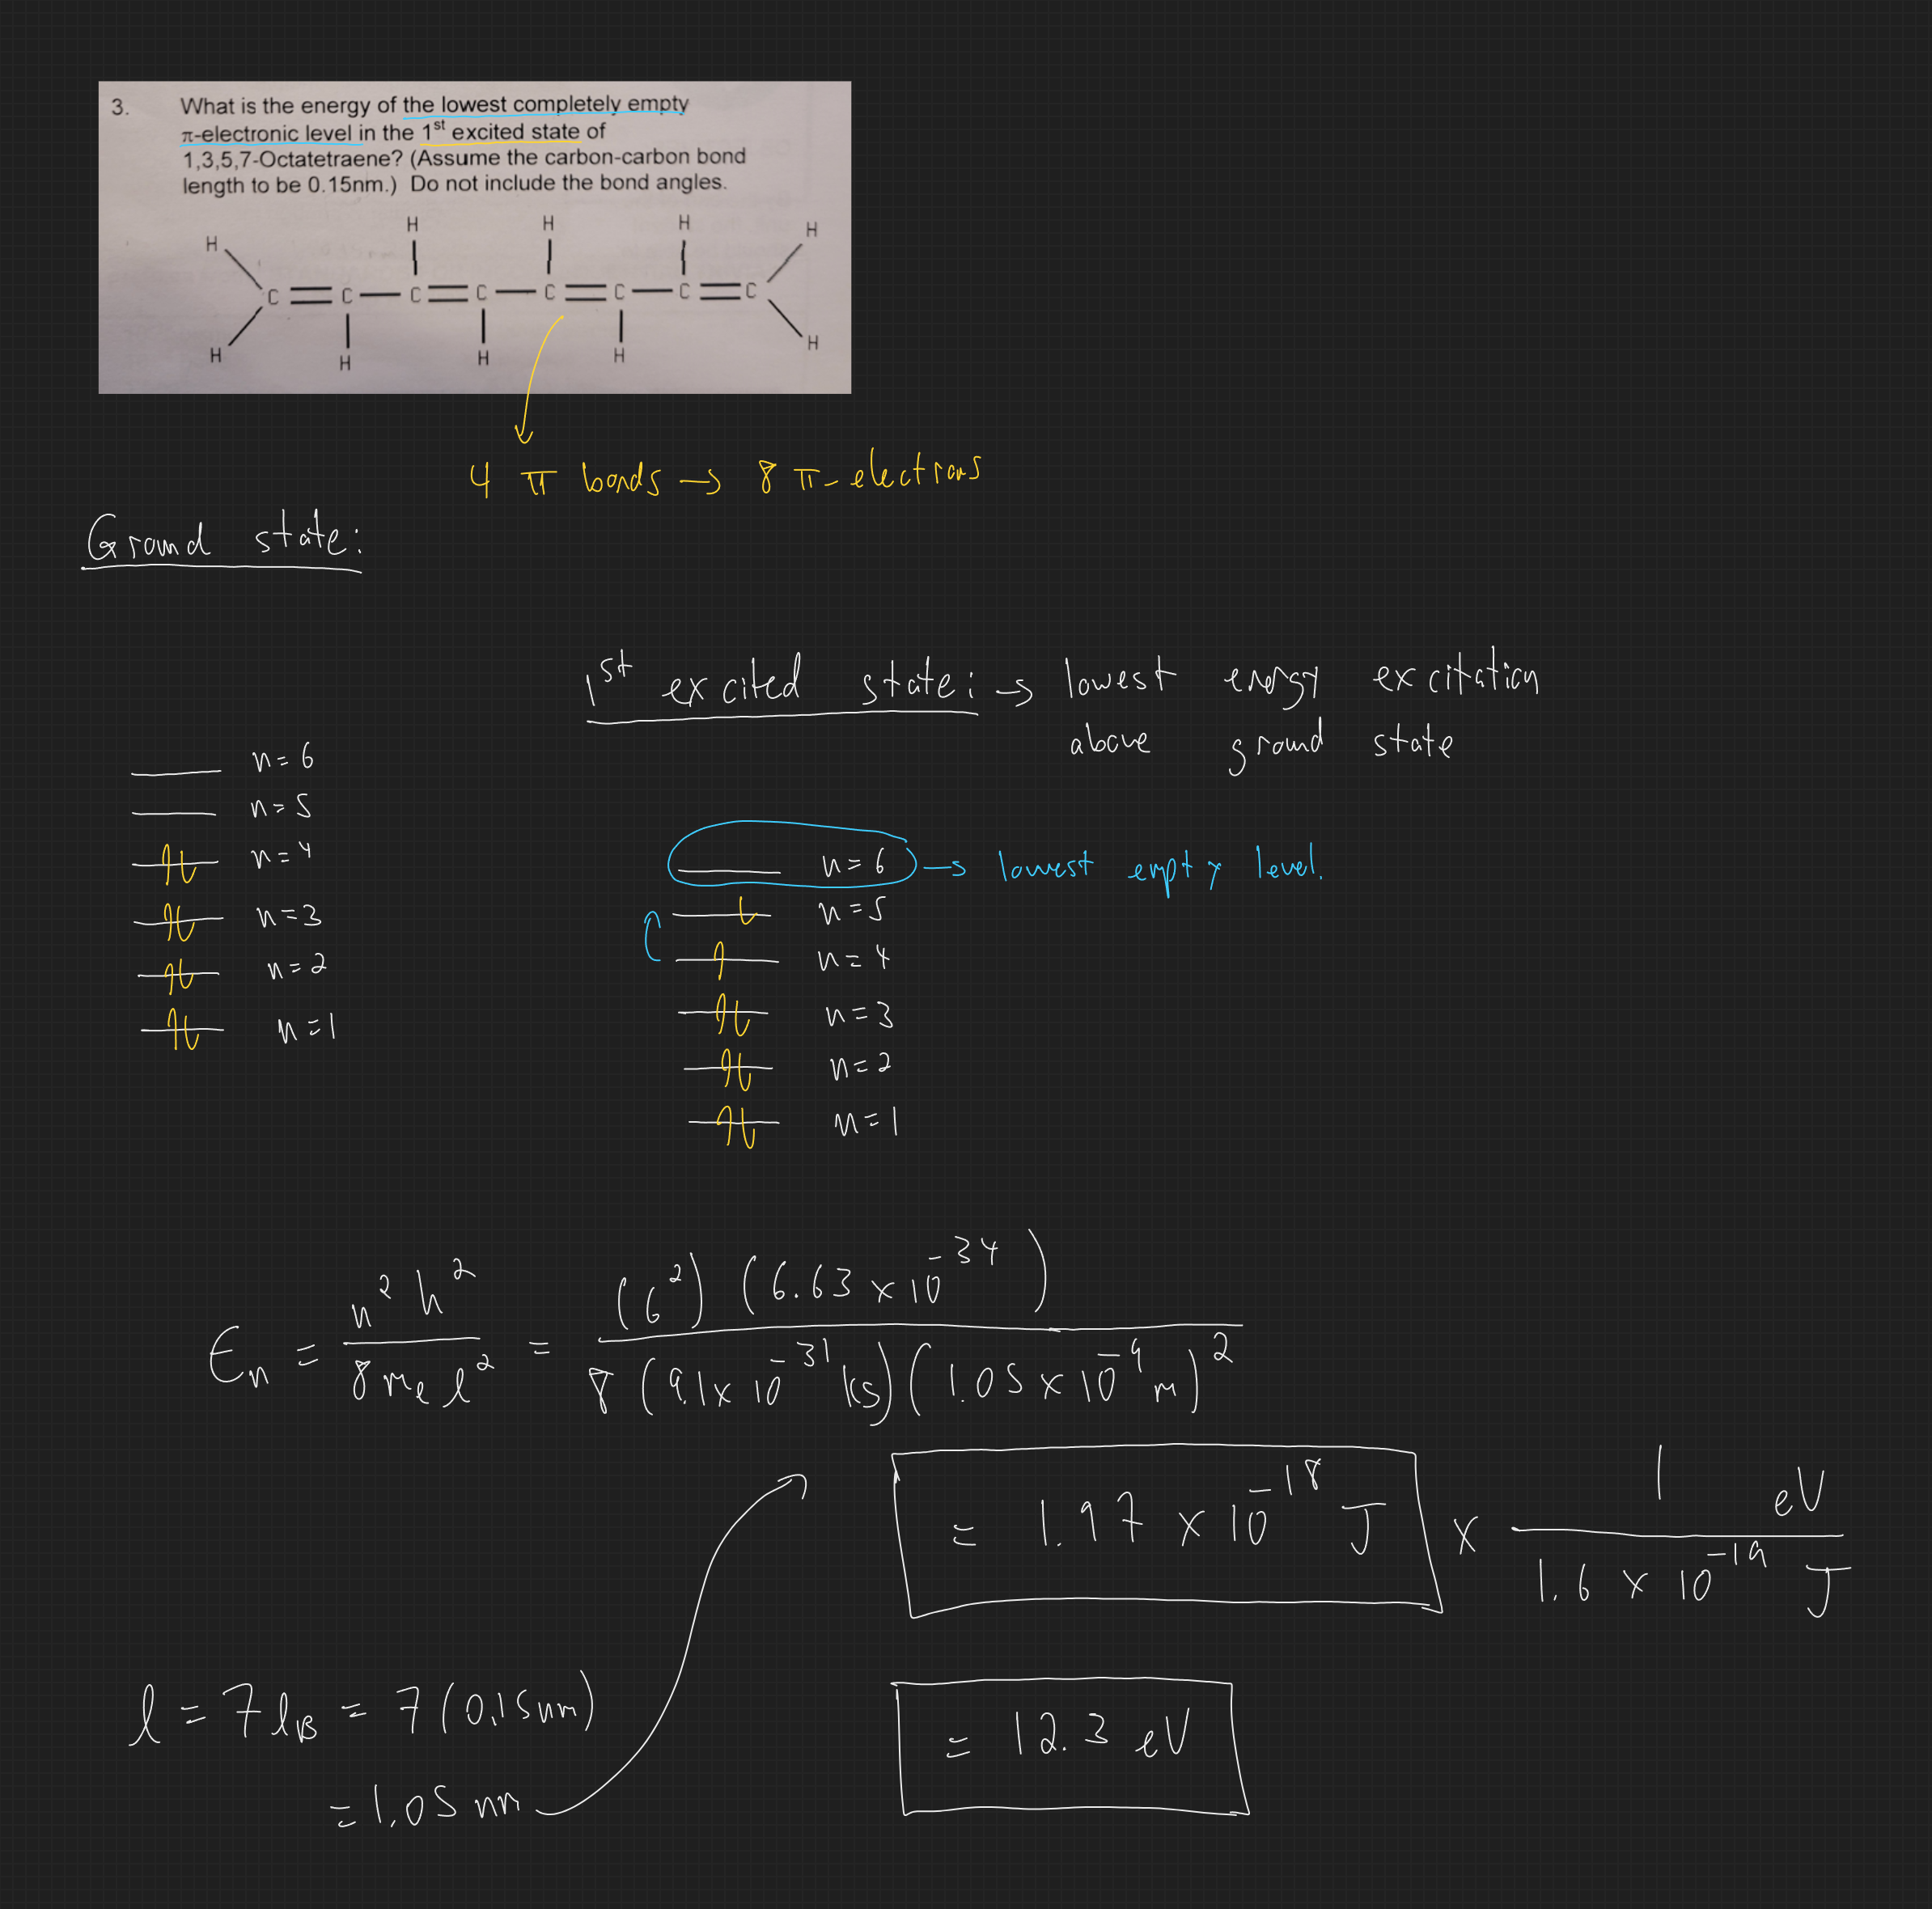 3. What is the energy of the lowest completely empty
π-electronic level in the 1st excited state of
1,3,5,7-Octatetraene? (Assume the carbon-carbon bond
length to be 0.15nm.) Do not include the bond angles.
H H H H H
C = C — C = C — C = C — C = C
H H H H H
4 π bonds → 8 π-electrons
Ground state:
1st excited state: → lowest energy excitation
above ground state
n = 6
n = 5
n = 4
n = 3
n = 2
n = 1
n = 6 → lowest empty level.
n = 5
n = 4
n = 3
n = 2
n = 1
ϵn = n² h² / 8 me l² = (6²) (6.63 x 10^-34) / 8 (9.1 x 10^-31 kg) (1.05 x 10^-9 m)²
= 1.97 x 10^-18 J x 1 eV / 1.6 x 10^-19 J
l = 7 lB = 7 (0.15 nm)
= 1.05 nm
= 12.3 eV